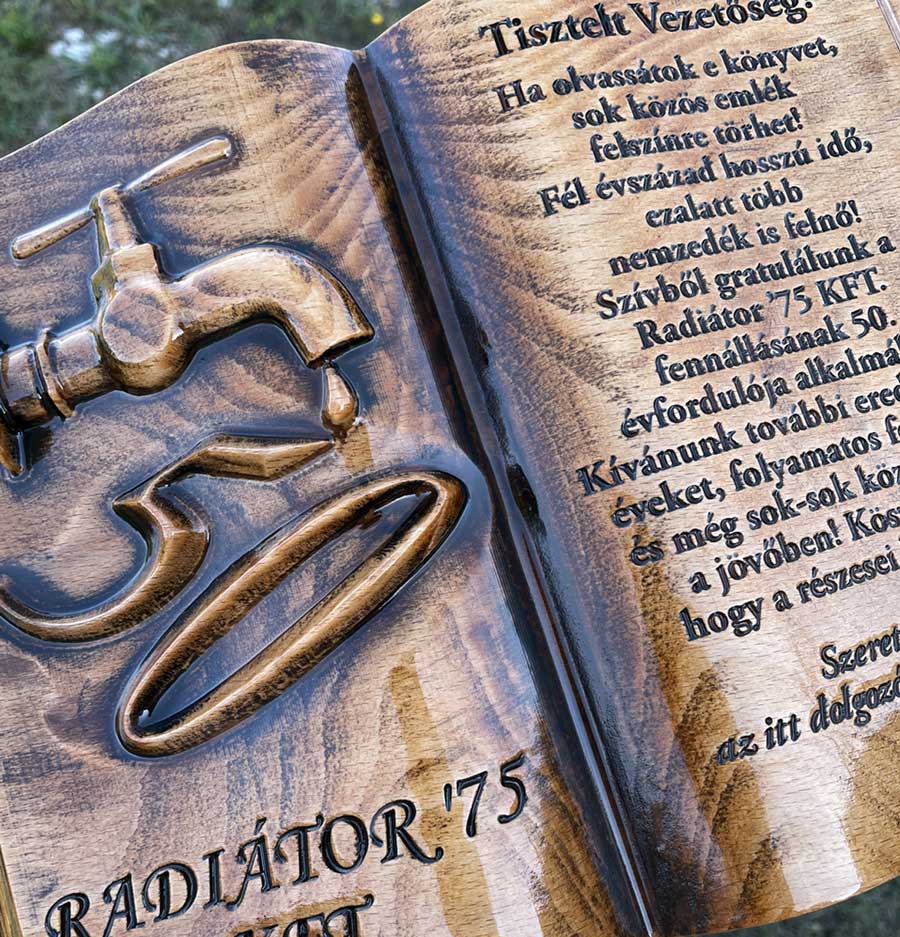 50
RADIÁTOR '75
KFT
Tisztelt Vezetőség!
Ha olvassátok e könyvet,
sok közös emlék
felszínre törhet!
Fél évszázad hosszú idő,
ezalatt több
nemzedék is felnő!
Szívből gratulálunk a
Radiátor '75 KFT.
fennállásának 50.
évfordulója
Kívánunk további
éveket, folyamatos
és még sok-sok
a jövőben!
hogy a részesei
az itt